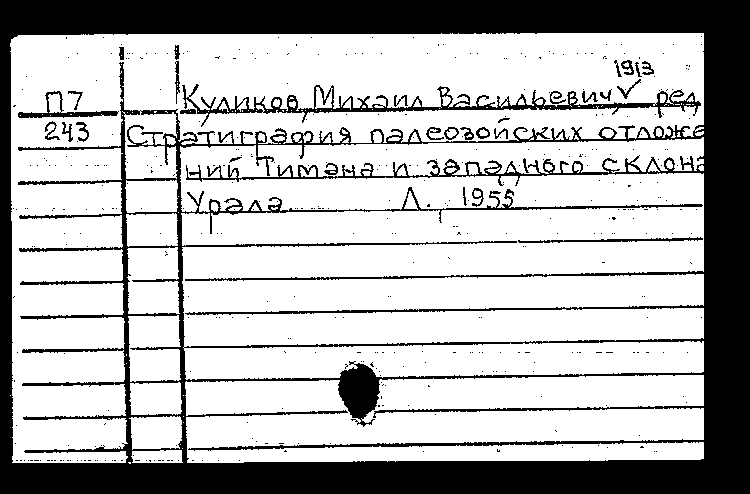 1913
П7 Куликов, Михаил Васильевич, ред.
243 Стратиграфия палеозойских отложе
ний Тимана и западного склона
Урала Л. 1955